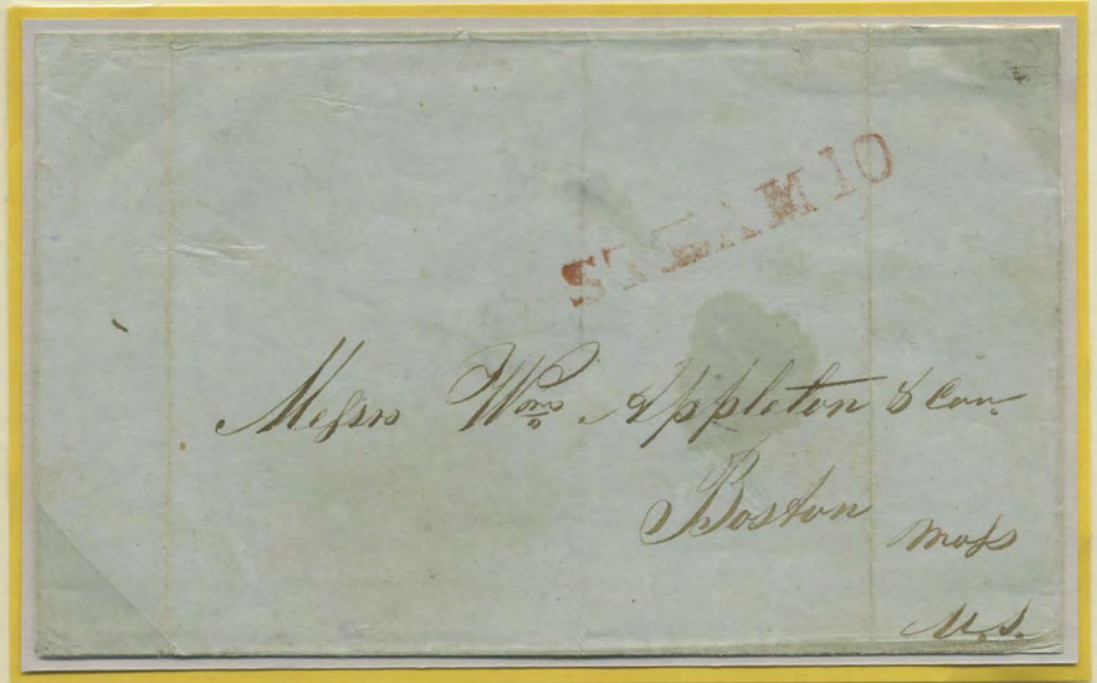 STEAM 10
Messrs Wm Appleton & Con.
Boston
Mass
U.S.